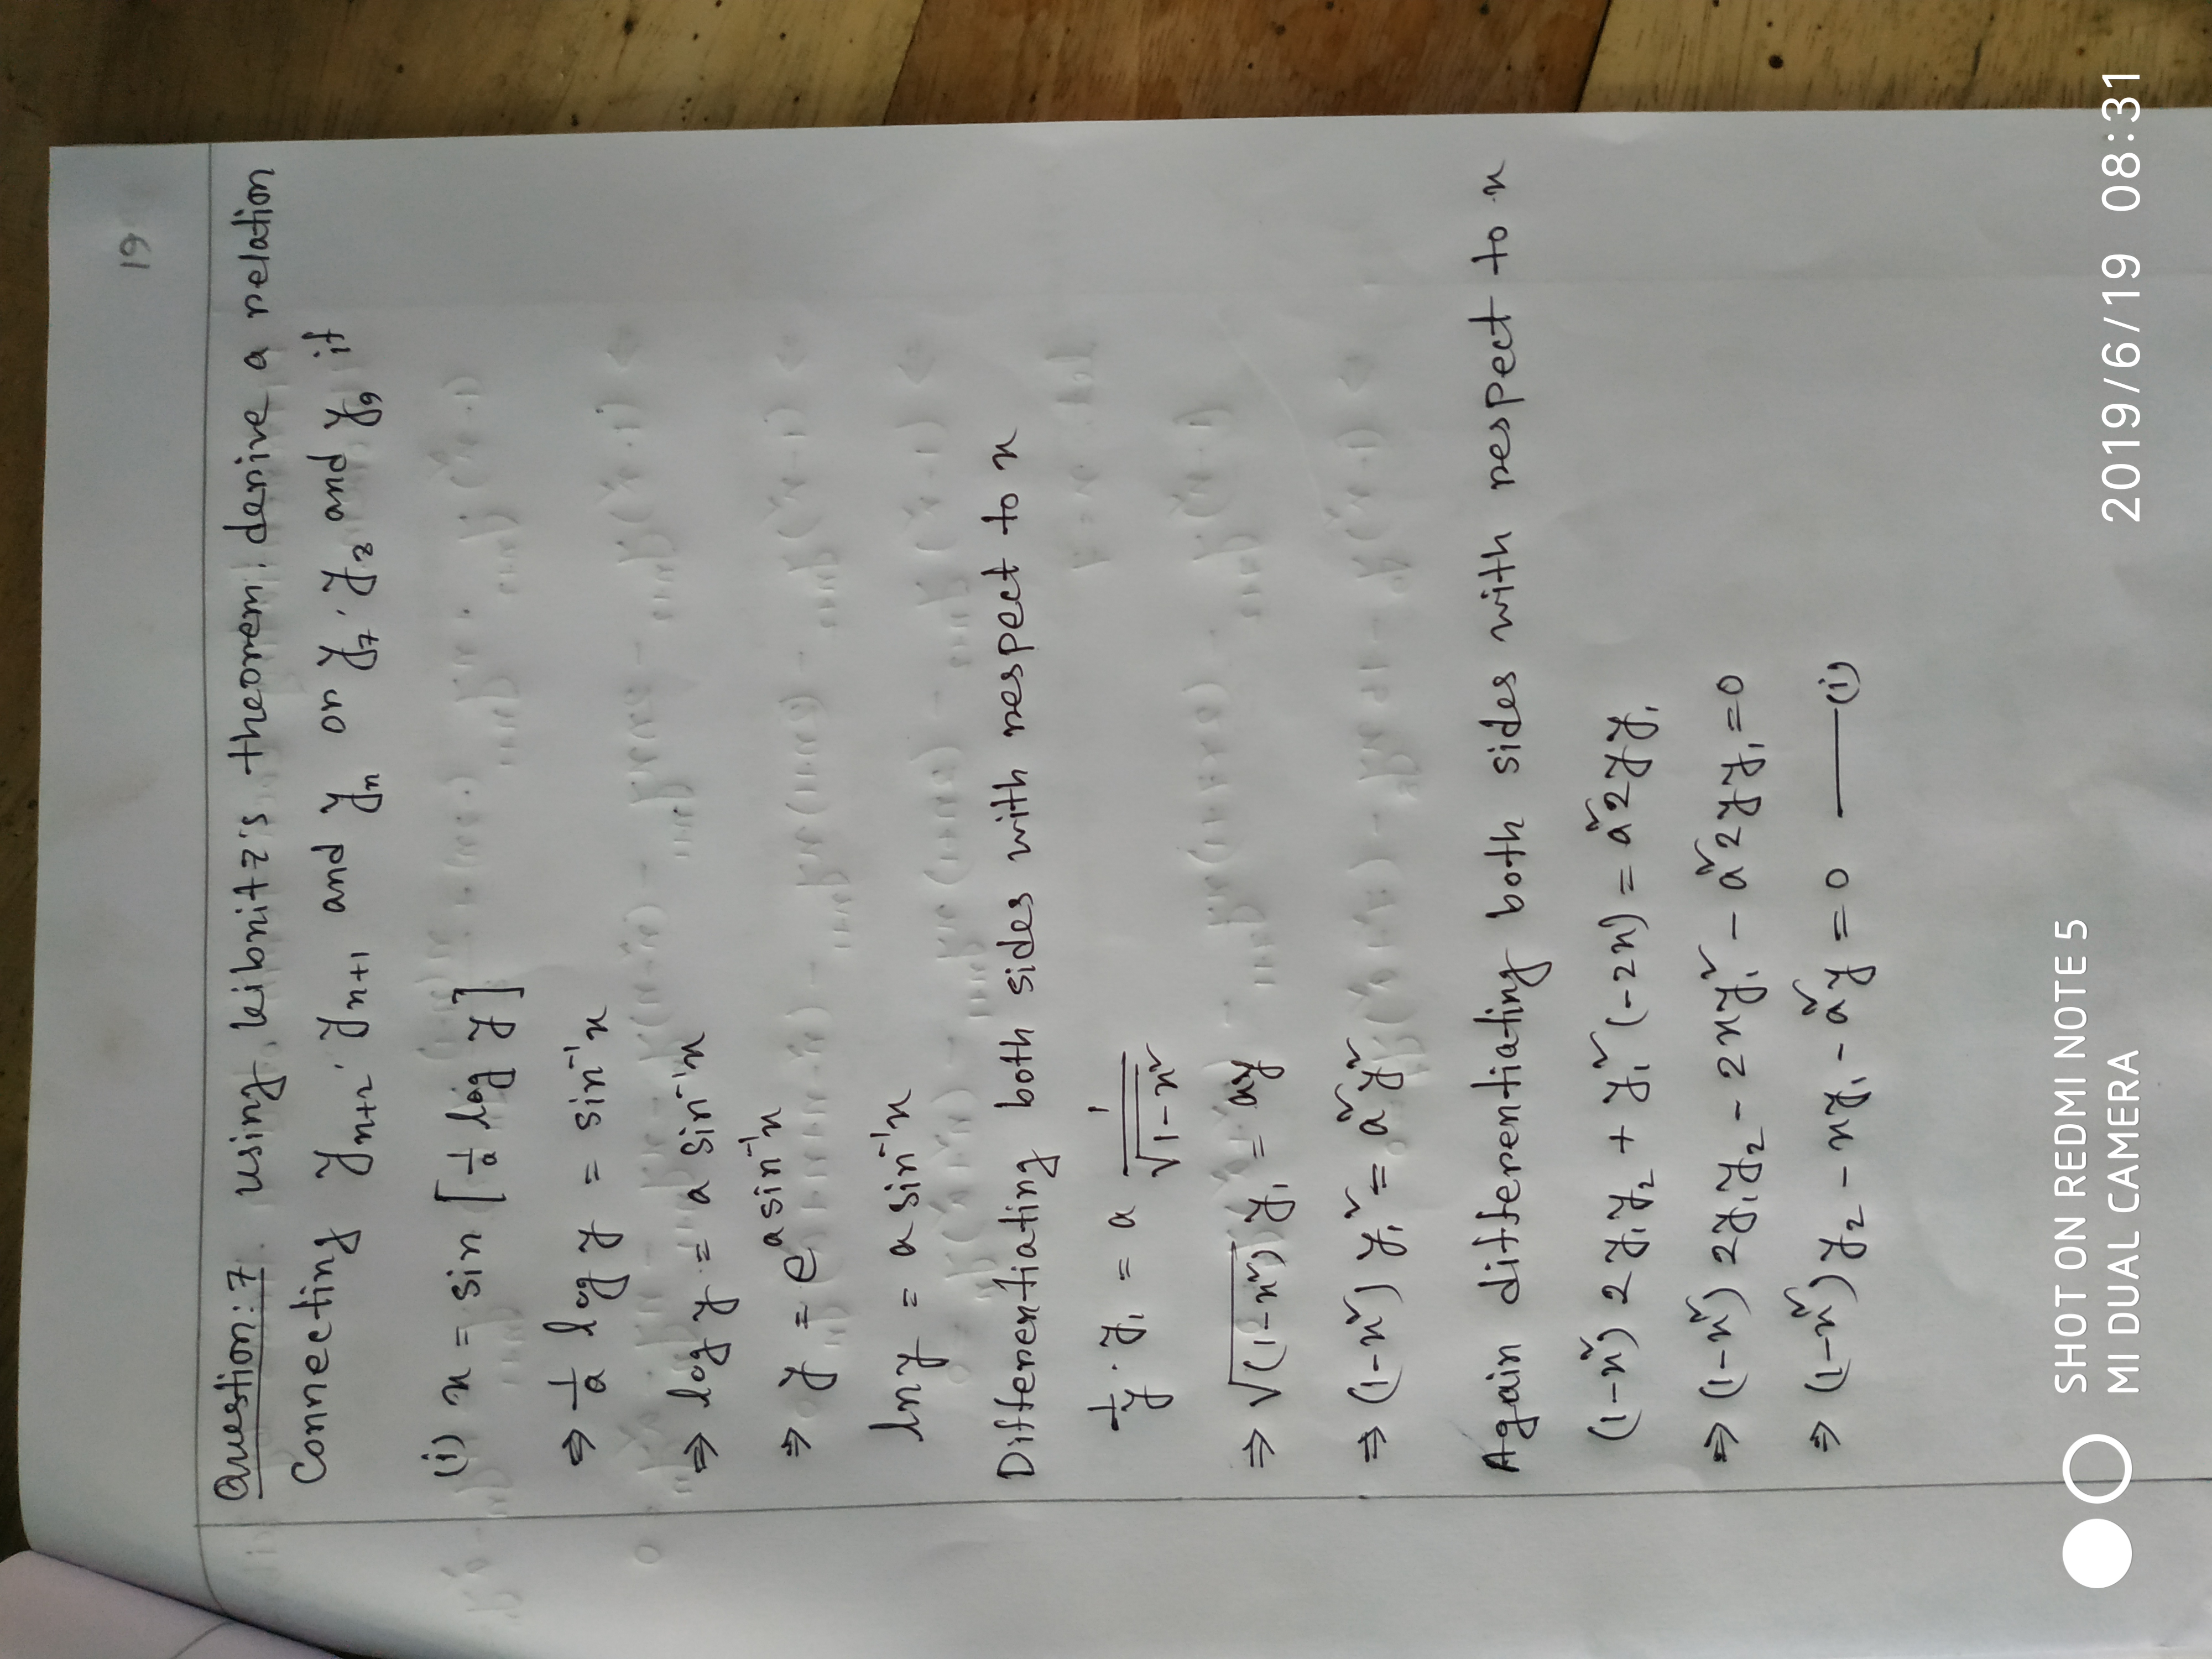 19
Question: 7. Using Leibnitz's theorem, derive a relation
Connecting yₙ₊₂, yₙ₊₁ and yₙ or y₇, y₈ and y₉ if
(i) x = sin [1/a log y]
⇒ 1/a log y = sin⁻¹x
⇒ log y = a sin⁻¹x
⇒ y = e^(a sin⁻¹x)
ln y = a sin⁻¹x
Differentiating both sides with respect to x
1/y · y₁ = a 1/√(1-x²)
⇒ √(1-x²) y₁ = ay
⇒ (1-x²) y₁² = a²y²
Again differentiating both sides with respect to x
(1-x²) 2y₁y₂ + y₁² (-2x) = a²2yy₁
⇒ (1-x²) 2y₁y₂ - 2xy₁² - a²2yy₁ = 0
⇒ (1-x²) y₂ - xy₁ - a²y = 0 ——(i)
SHOT ON REDMI NOTE 5
MI DUAL CAMERA
2019/6/19 08:31